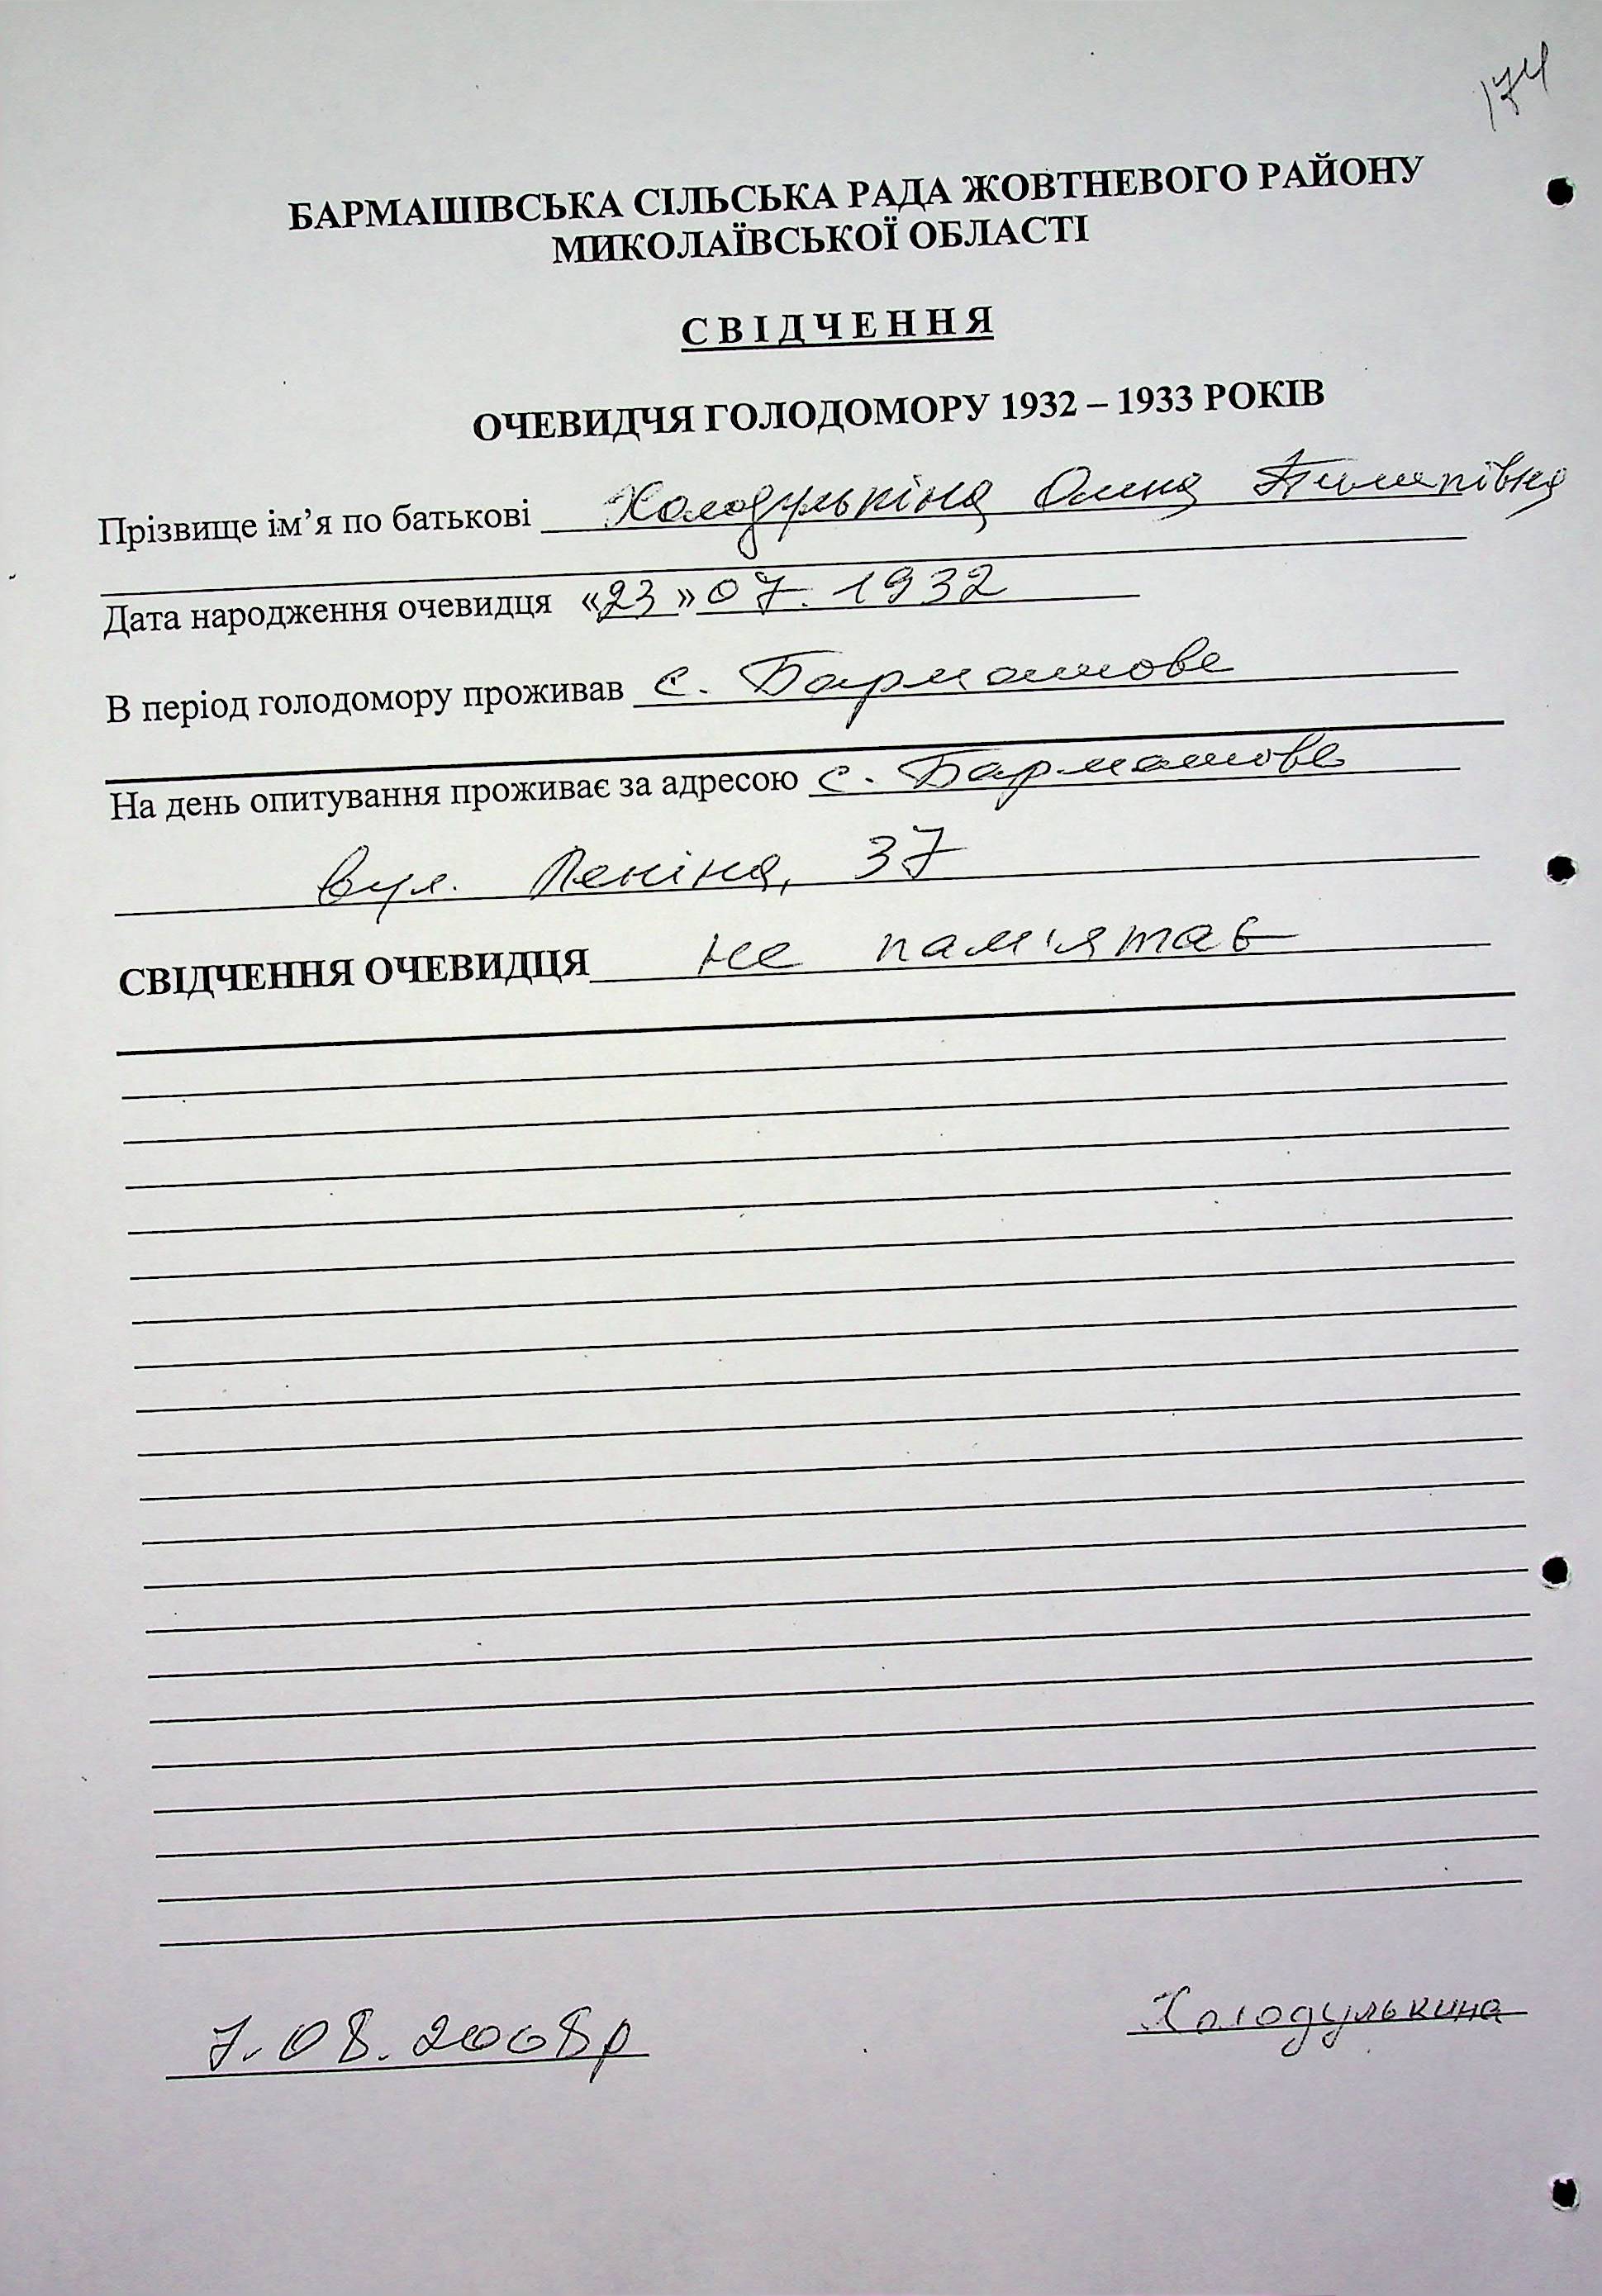 174
БАРМАШІВСЬКА СІЛЬСЬКА РАДА ЖОВТНЕВОГО РАЙОНУ
МИКОЛАЇВСЬКОЇ ОБЛАСТІ
СВІДЧЕННЯ
ОЧЕВИДЧЯ ГОЛОДОМОРУ 1932 – 1933 РОКІВ
Прізвище ім’я по батькові Холодулькіна Олена Пилипівна
Дата народження очевидця «23» 07. 1932
В період голодомору проживав с. Бармашове
На день опитування проживає за адресою с. Бармашове
вул. Леніна, 37
СВІДЧЕННЯ ОЧЕВИДЦЯ не пам'ятає
7.08.2008р Холодулькина